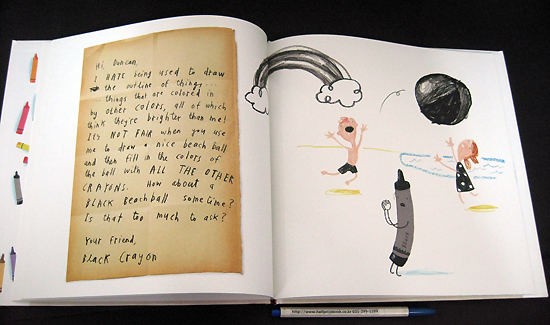 Hi, Duncan,
I HATE being used to draw
the outline of things...
things that are colored in
by other colors, all of which
think they're brighter than me!
It's NOT FAIR when you use
me to draw a nice beach ball
and then fill in the colors of
the ball with ALL THE OTHER
CRAYONS. How about a
BLACK Beachball sometime?
Is that too much to ask?
Your friend,
Black Crayon